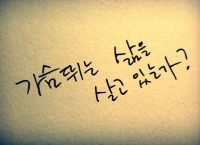 가슴뛰는 삶을
살고 있는가?